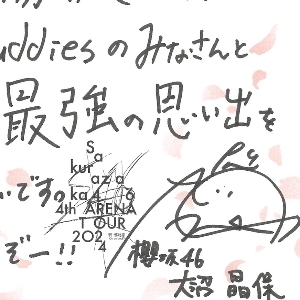 uddiesのみなさんと
最強の思い出を
いです。
ぞー!!
Sa
kuraza
ka46
4th ARENA
TOUR
2024
櫻坂46
大沼 晶保